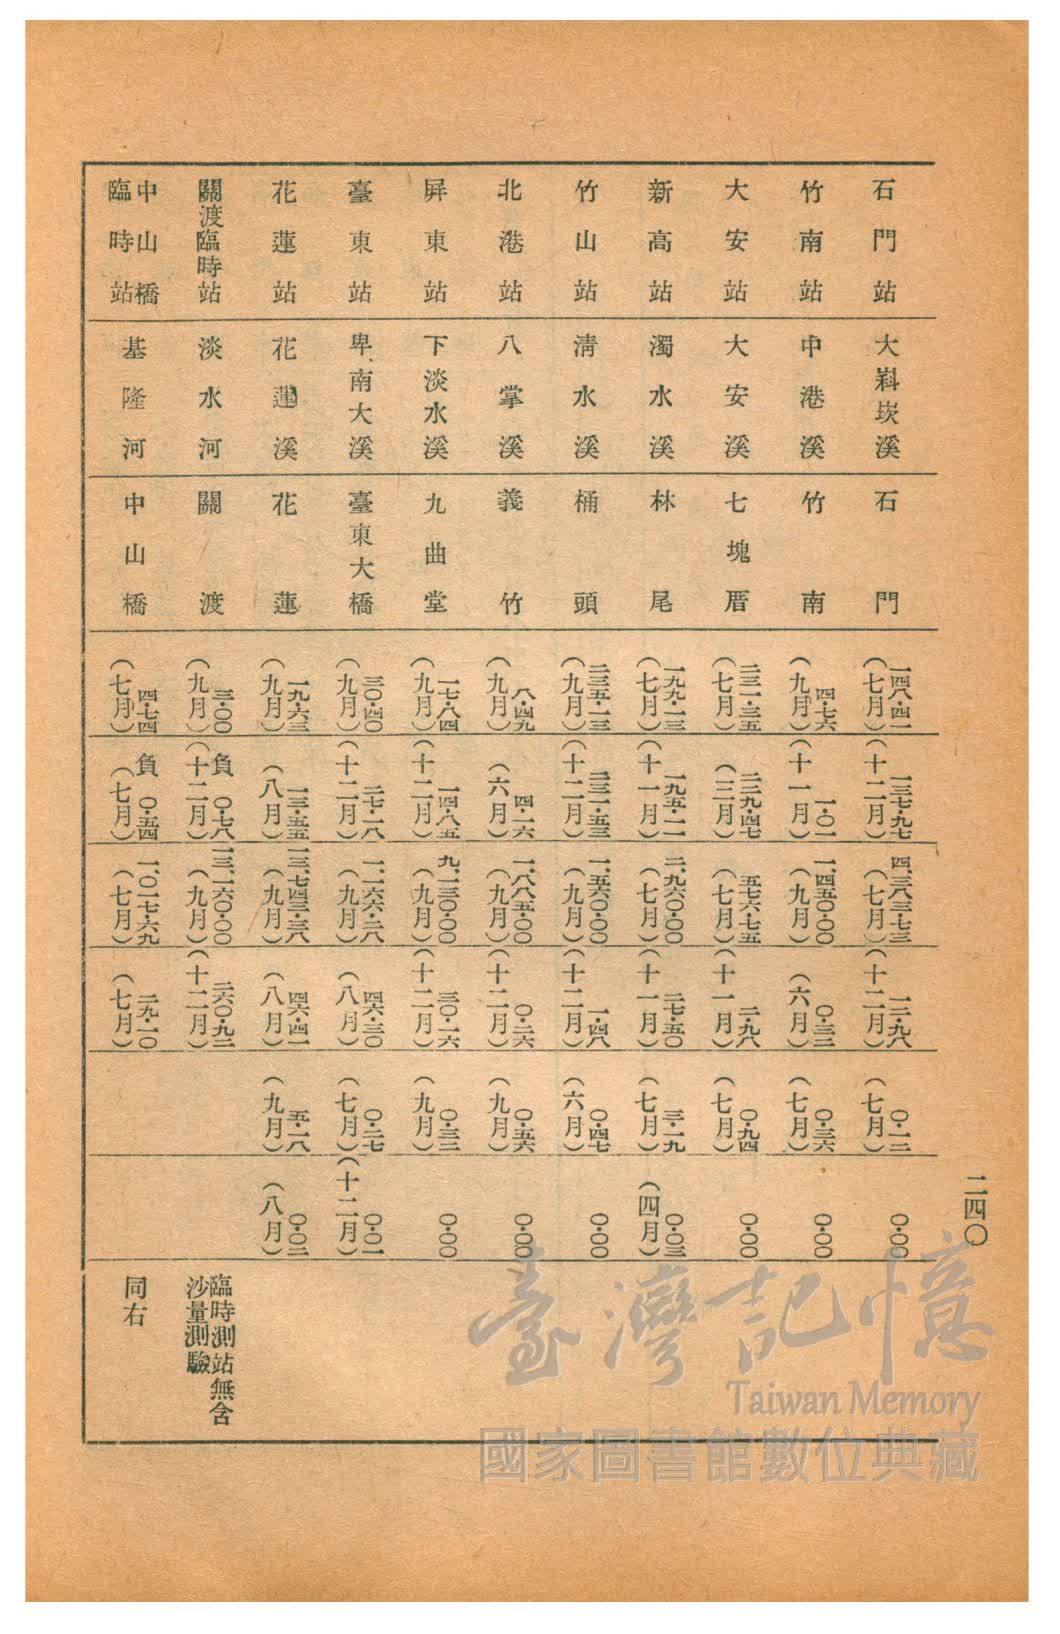 二四〇
石門站 大嵙崁溪 石門 一四八·四一(七月) 一三七·九七(十二月) 四、三八三·七三(七月) 一二·九八(十二月) 〇·一二(七月) 〇·〇〇
竹南站 中港溪 竹南 四·七六(九月) 一·〇一(十一月) 一、四五〇·〇〇(九月) 〇·三二(六月) 〇·三六(七月) 〇·〇〇
大安站 大安溪 七塊厝 二三一·三五(七月) 二二九·四七(三月) 五七六·七五(七月) 二·九八(十一月) 〇·九四(七月) 〇·〇〇
新高站 濁水溪 林尾 一九九·一三(七月) 一九五·一一(十一月) 二、九六〇·〇〇(七月) 二七·五〇(十一月) 三·一九(七月) 〇·〇三(四月)
竹山站 清水溪 桶頭 二三五·一三(九月) 二三一·五三(十二月) 一、五六〇·〇〇(九月) 一·四八(十二月) 〇·四七(六月) 〇·〇〇
北港站 八掌溪 義竹 八·四九(九月) 四·一六(六月) 一、八八五·〇〇(九月) 〇·二六(十二月) 〇·五六(九月) 〇·〇〇
屏東站 下淡水溪 九曲堂 一七·八四(九月) 一四·八五(十二月) 九、一三〇·〇〇(九月) 三〇·一六(十二月) 〇·三二(九月) 〇·〇〇
臺東站 卑南大溪 臺東大橋 三〇·四〇(九月) 二七·一八(十二月) 一、一六六·二八(九月) 四六·三〇(八月) 〇·二七(七月) 〇·〇一(十二月)
花蓮站 花蓮溪 花蓮 一九·六三(九月) 一三·五五(八月) 一三、七四三·三八(九月) 四六·四一(八月) 五·一八(九月) 〇·〇二(八月)
關渡臨時站 淡水河 關渡 三·〇〇(九月) 負〇·七八(十二月) 一三、一六〇·〇〇(九月) 二六〇·九二(十二月) 臨時測站無含沙量測驗
中山橋臨時站 基隆河 中山橋 四·七四(七月) 負〇·五四(七月) 一、〇一七·六九(七月) 二九·一〇(七月) 同右
臺灣記憶
Taiwan Memory
國家圖書館數位典藏